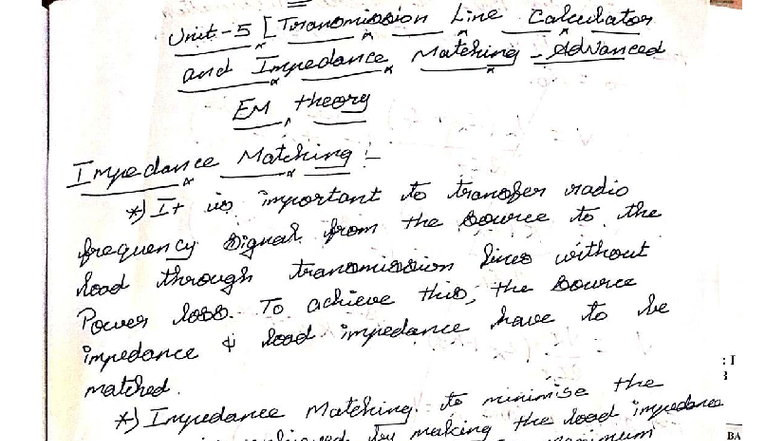 Unit-5 [Transmission Line Calculator
and Impedance Matching - Advanced
EM theory
Impedance Matching :-
*) It is important to transfer radio
frequency signal from the source to the
load through transmission lines without
Power loss. To achieve this, the source
impedance & load impedance have to be
matched.
*) Impedance Matching to minimise the
by making the load impedance
: I
3
BA